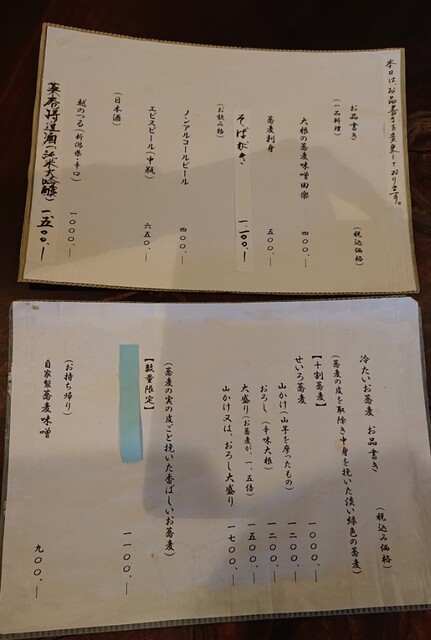 本日は、お品書きを変更しております。
お品書き
(税込価格)
(一品料理)
大根の蕎麦味噌田楽 四〇〇、―
蕎麦刺身 五〇〇、―
そばがき 一、一〇〇、―
(お飲み物)
ノンアルコールビール 四〇〇、―
エビスビール(中瓶) 六五〇、―
(日本酒)
越のつる(新潟県・辛口) 一〇〇〇、―
特造酒(純米大吟醸) 一、五〇〇、―
冷たいお蕎麦 お品書き
(税込み価格)
(蕎麦の皮を取除き中身を挽いた淡い緑色の蕎麦)
【十割蕎麦】
せいろ蕎麦 一〇〇〇、―
山かけ(山芋を摩ったもの) 一二〇〇、―
おろし(辛味大根) 一二〇〇、―
大盛り(お蕎麦が、一、五倍) 一五〇〇、―
山かけ又は、おろし大盛り 一七〇〇、―
(蕎麦の実の皮ごと挽いた香ばしいお蕎麦)
【数量限定】
一一〇〇、―
(お持ち帰り)
自家製蕎麦味噌 九〇〇、―